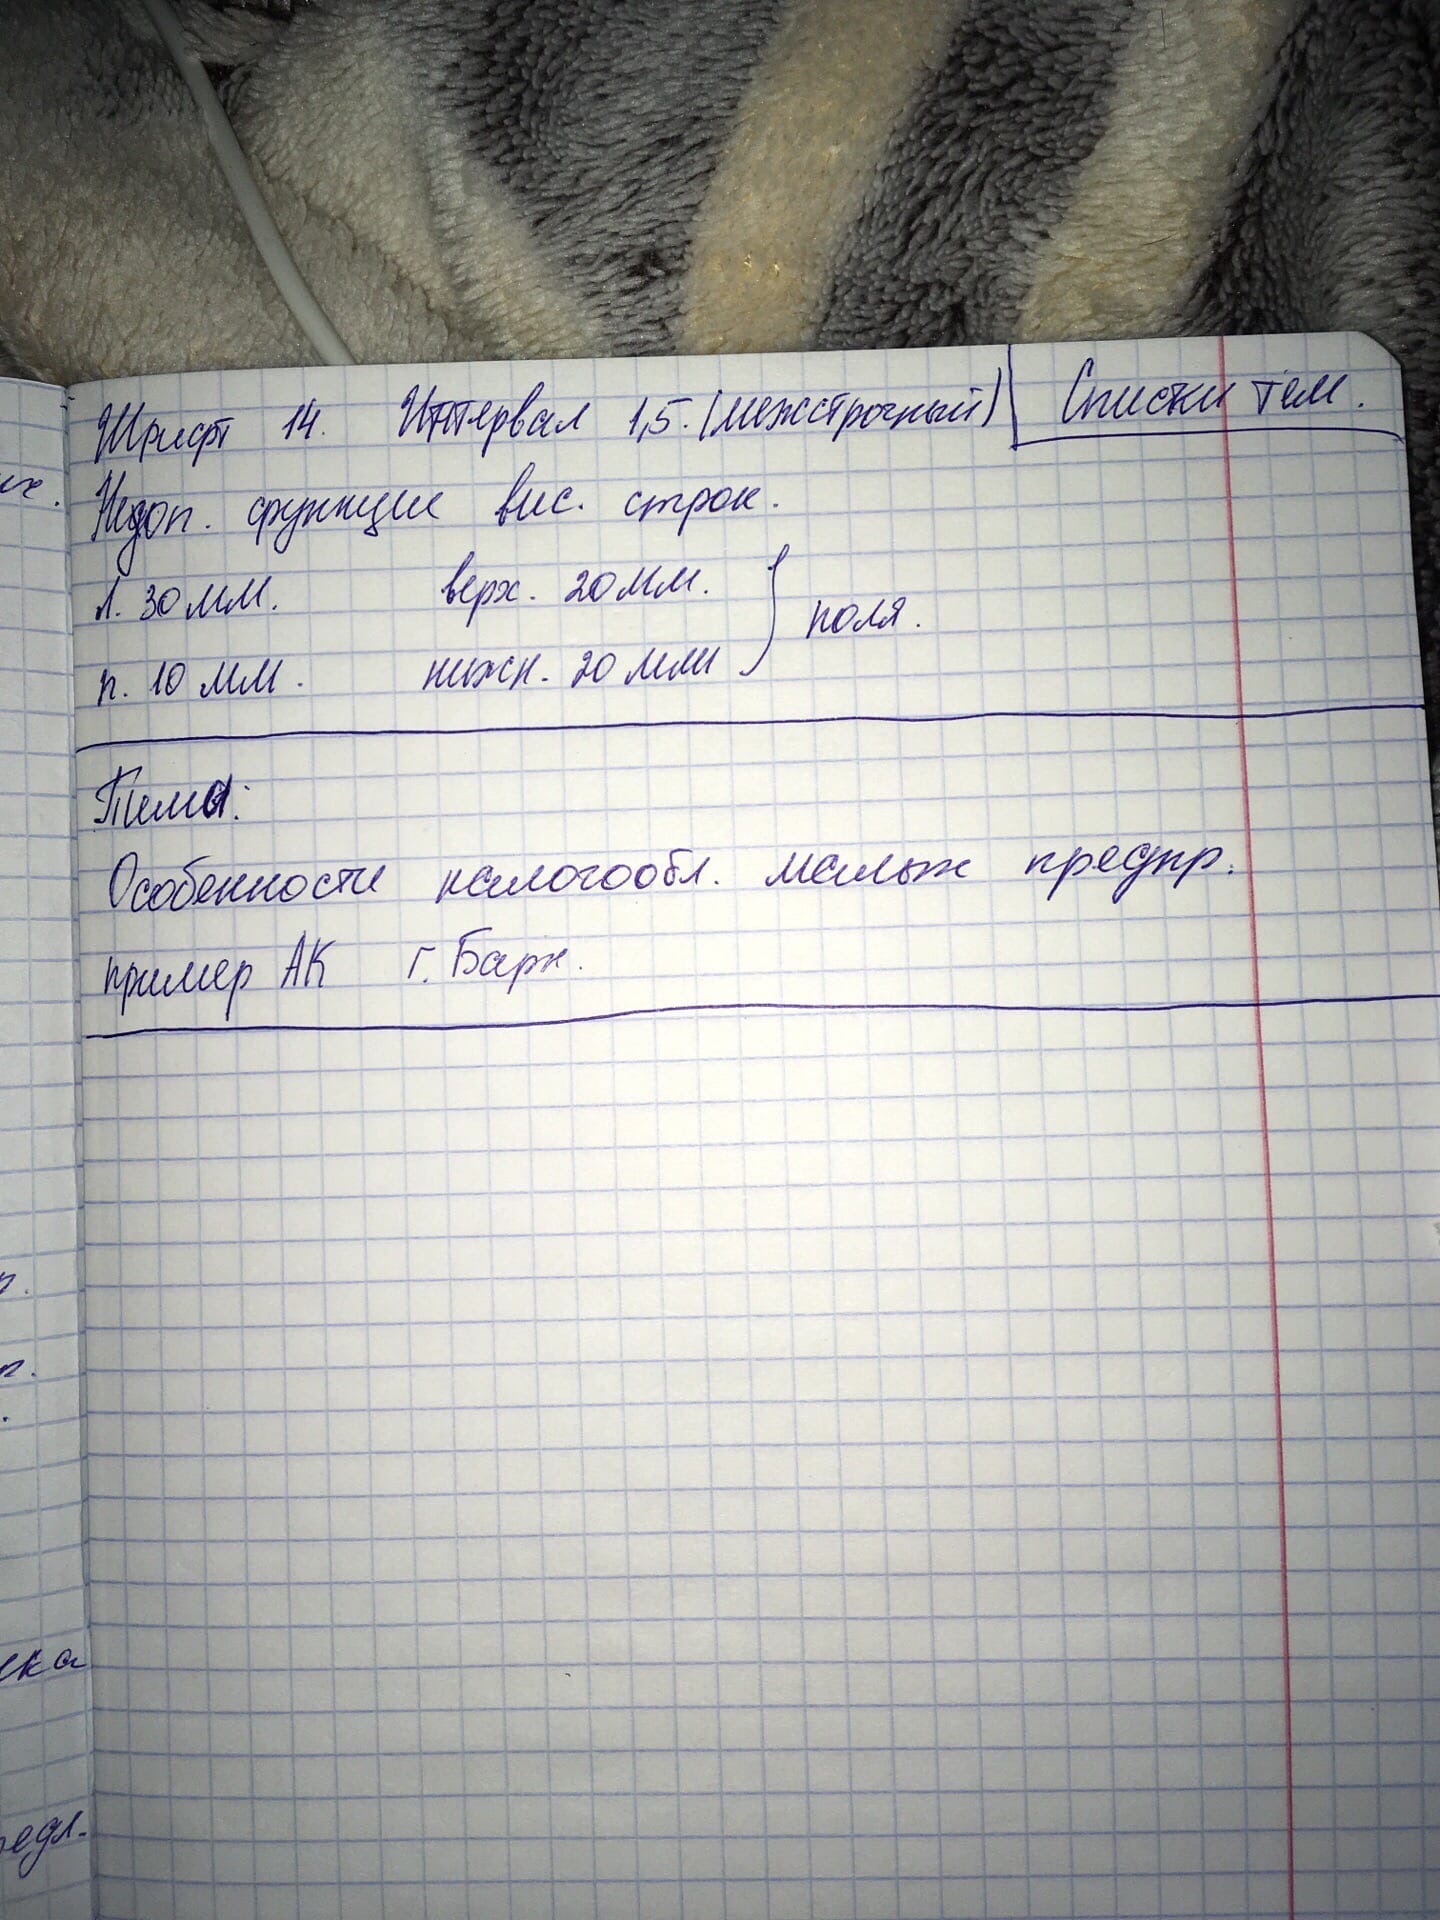 Шрифт 14. Интервал 1,5. (межстрочный)
Списки тем.
Недоп. функции вис. строк.
л. 30 мм. верх. 20 мм.
п. 10 мм. нижн. 20 мм
поля.
Темы:
Особенности налогообл. малых предпр.
пример АК г. Барн.